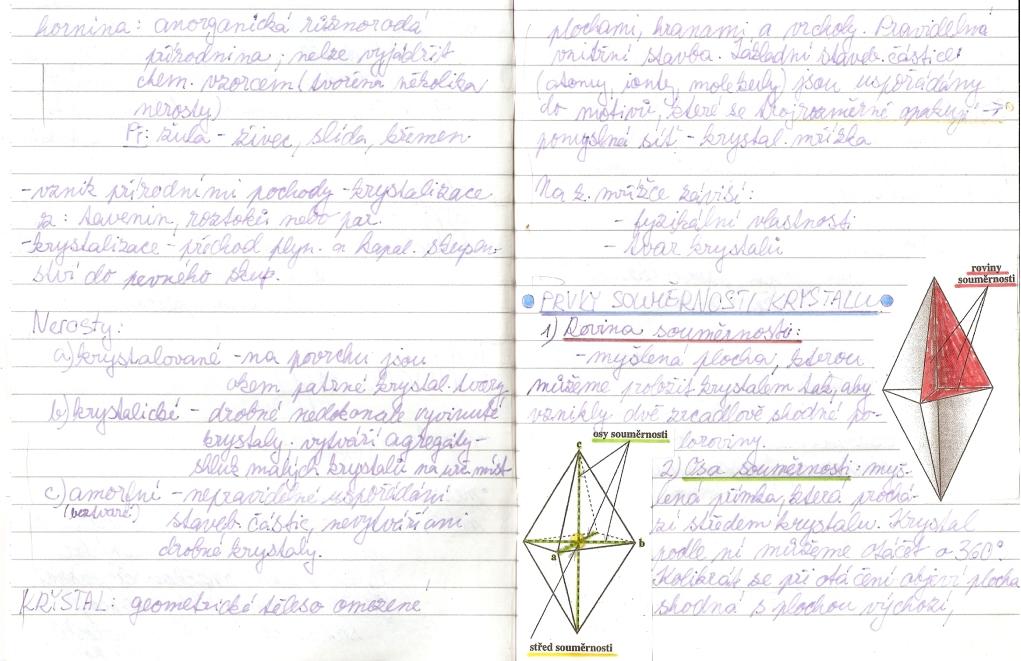 hornina: anorganická různorodá
přírodnina; nelze vyjádřit
chem. vzorcem (tvořena několika
nerosty)
Př: žula - živec, slída, křemen
-vznik přírodními pochody -krystalizace
z: tavenin, roztoků nebo par.
-krystalizace - přechod plyn. a kapal. skupen-
ství do pevného skup.
Nerosty:
a) krystalované - na povrchu jsou
okem patrné krystal. tvary
b) krystalické - drobné nedokonale vyvinuté
krystaly. vytváří agregáty -
shluk malých krystalů na urč. míst
c) amorfní - nepravidelné uspořádání
(beztvaré) staveb. částic, nevytváří ami
drobné krystaly.
KRYSTAL: geometrické těleso omezené
plochami, hranami a vrcholy. Pravidelná
vnitřní stavba. Základní staveb. částice:
(atomy, ionty, molekuly) jsou uspořádány
do motivů, které se trojrozměrně opakují ->
pomyslná síť - krystal. mřížka
Na k. mřížce závisí:
- fyzikální vlastnosti
- tvar krystalů
PRVKY SOUMĚRNOSTI KRYSTALU
1) Rovina souměrnosti:
- myšlená plocha, kterou
můžeme proložit krystalem tak, aby
vznikly dvě zrcadlově shodné po-
loroviny.
2) Osa souměrnosti: myš-
lená přímka, která prochá-
zí středem krystalu. Krystal
podle ní můžeme otáčet o 360°
Kolikrát se při otáčení objeví plocha
shodná s plochou výchozí,
roviny
souměrnosti
osy souměrnosti
c
a
b
střed souměrnosti